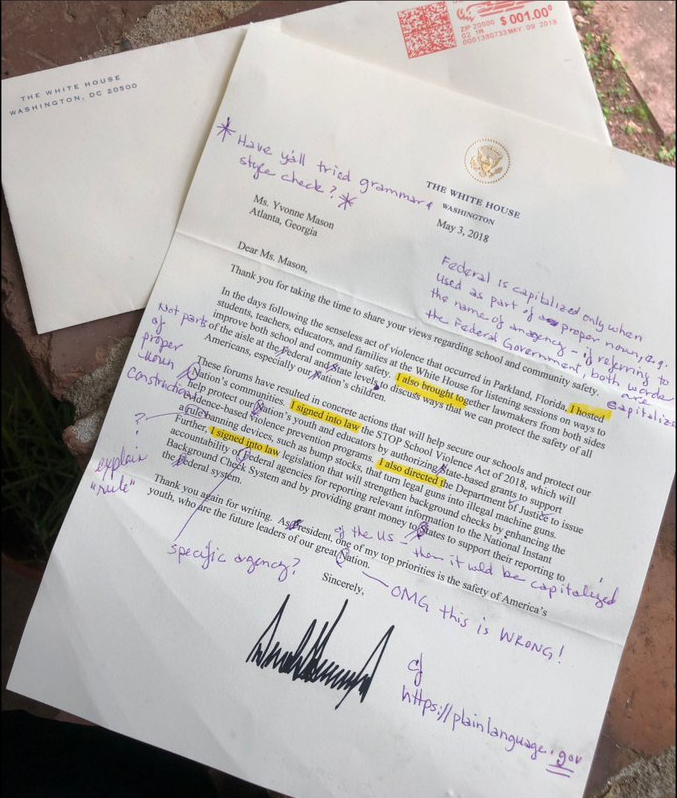 THE WHITE HOUSE
WASHINGTON, DC 20500
ZIP 20500 $ 001.00⁰
02 1M
0001380733 MAY 09 2018
* Have y'all tried grammar &
style check? *
THE WHITE HOUSE
WASHINGTON
May 3, 2018
Ms. Yvonne Mason
Atlanta, Georgia
Dear Ms. Mason,
Federal is capitalized only when
used as part of a proper noun, e.g.
the name of an agency - if referring to
the Federal Government, both words
are
capitalized
Thank you for taking the time to share your views regarding school and community safety.
In the days following the senseless act of violence that occurred in Parkland, Florida, I hosted
students, teachers, educators, and families at the White House for listening sessions on ways to
improve both school and community safety. I also brought together lawmakers from both sides
of the aisle at the Federal and State levels to discuss ways that we can protect the safety of all
Americans, especially our Nation's children.
Not parts
of
proper
noun
construction
These forums have resulted in concrete actions that will help secure our schools and protect our
Nation's communities. I signed into law the STOP School Violence Act of 2018, which will
help protect our Nation's youth and educators by authorizing State-based grants to support
evidence-based violence prevention programs. I also directed the Department of Justice to issue
a rule banning devices, such as bump stocks, that turn legal guns into illegal machine guns.
Further, I signed into law legislation that will strengthen background checks by enhancing the
accountability of Federal agencies for reporting relevant information to the National Instant
Background Check System and by providing grant money to States to support their reporting to
the Federal system.
?
explain
"rule"
Thank you again for writing. As President, one of my top priorities is the safety of America's
youth, who are the future leaders of our great Nation.
of the US - then it wld be capitalized
specific agency?
OMG this is WRONG!
Sincerely,
cf
https://plainlanguage.gov